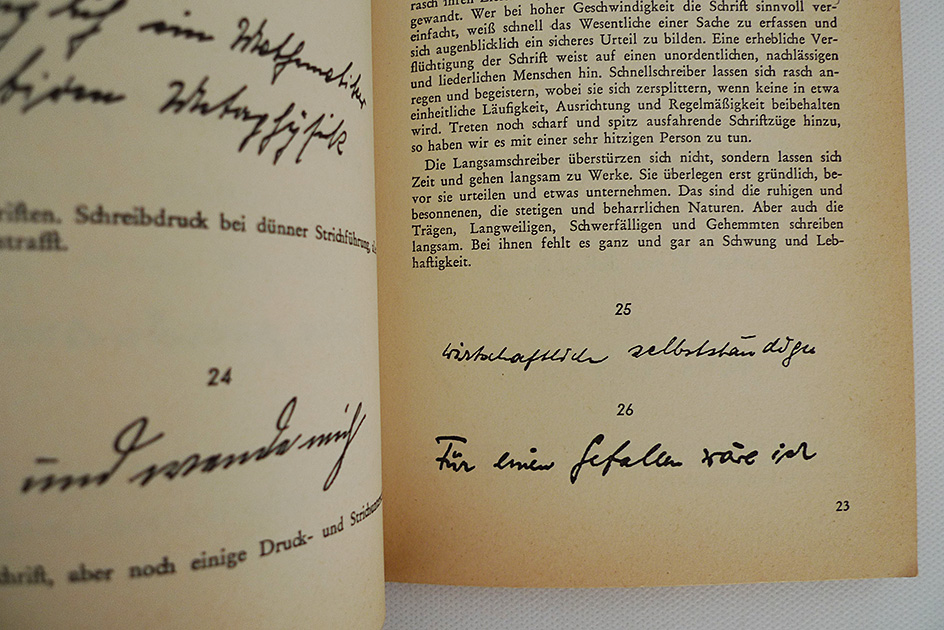 ein Mathematiker
Metaphysik
riften. Schreibdruck bei dünner Strichführung,
strafft.
24
und wende mich
chrift, aber noch einige Druck- und
rasch ihren
gewandt. Wer bei hoher Geschwindigkeit die Schrift sinnvoll ver-
einfacht, weiß schnell das Wesentliche einer Sache zu erfassen und
sich augenblicklich ein sicheres Urteil zu bilden. Eine erhebliche Ver-
flüchtigung der Schrift weist auf einen unordentlichen, nachlässigen
und liederlichen Menschen hin. Schnellschreiber lassen sich rasch an-
regen und begeistern, wobei sie sich zersplittern, wenn keine in etwa
einheitliche Läufigkeit, Ausrichtung und Regelmäßigkeit beibehalten
wird. Treten noch scharf und spitz ausfahrende Schriftzüge hinzu,
so haben wir es mit einer sehr hitzigen Person zu tun.
Die Langsamschreiber überstürzen sich nicht, sondern lassen sich
Zeit und gehen langsam zu Werke. Sie überlegen erst gründlich, be-
vor sie urteilen und etwas unternehmen. Das sind die ruhigen und
besonnenen, die stetigen und beharrlichen Naturen. Aber auch die
Trägen, Langweiligen, Schwerfälligen und Gehemmten schreiben
langsam. Bei ihnen fehlt es ganz und gar an Schwung und Leb-
haftigkeit.
25
wirtschaftlich selbstständigen
26
Für einen Gefallen wäre ich
23